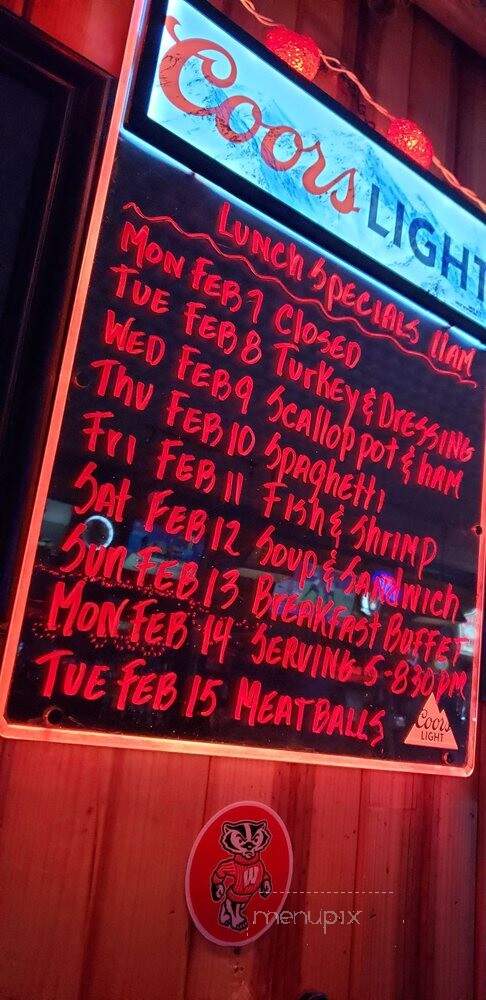 Coors LIGHT
LUNCH SPECIALS 11AM
MON FEB 7 CLOSED
TUE FEB 8 TURKEY & DRESSING
WED FEB 9 SCALLOP POT & HAM
THU FEB 10 SPAGHETTI
FRI FEB 11 FISH & SHRIMP
SAT FEB 12 SOUP & SANDWICH
SUN FEB 13 BREAKFAST BUFFET
MON FEB 14 SERVING 5-830PM
TUE FEB 15 MEATBALLS
Coors
LIGHT
W
menupix